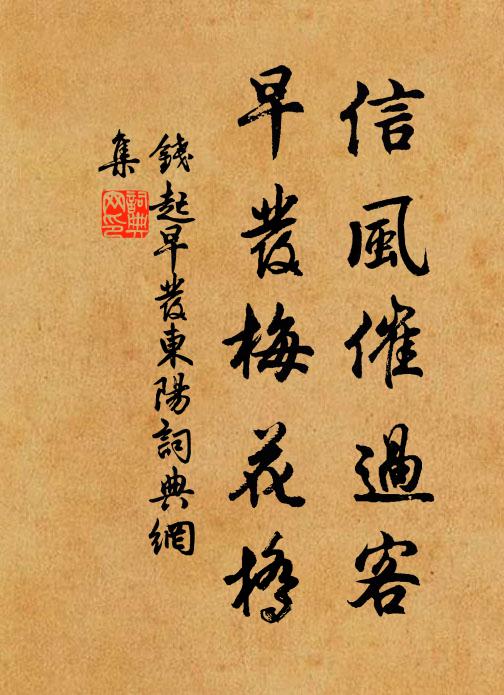 信風催過客
早發梅花橋
錢起早發東陽詞典網
集
詞典網印